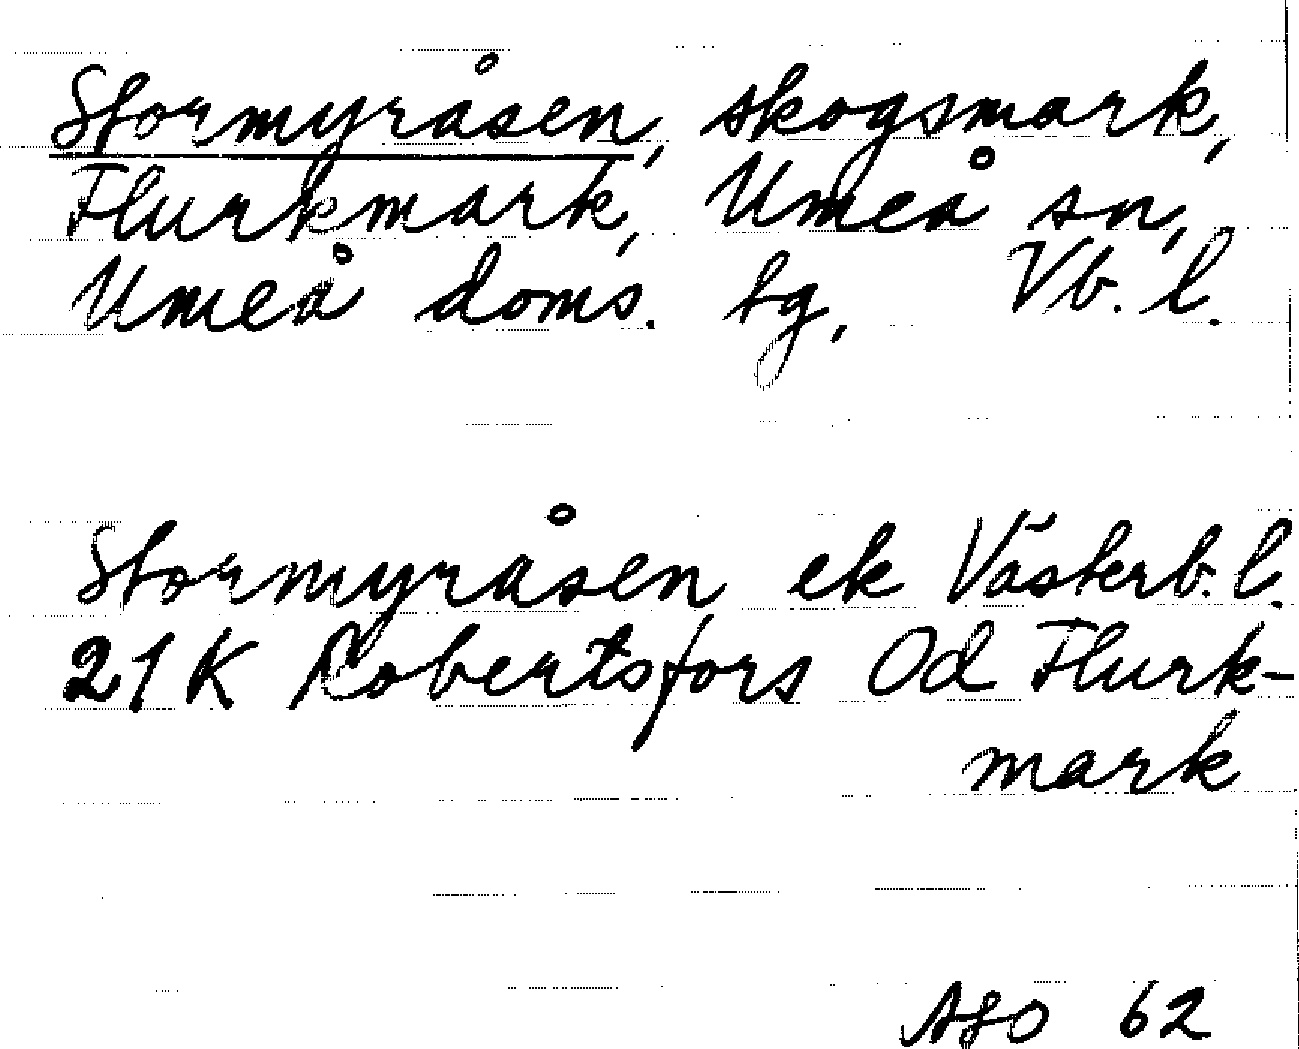 Stormyråsen, skogsmark,
Flurkmark, Umeå sn,
Umeå doms. tg, Vb. l.
Stormyråsen ek Västerb. l.
21K Robertsfors Od Flurk-
mark
62